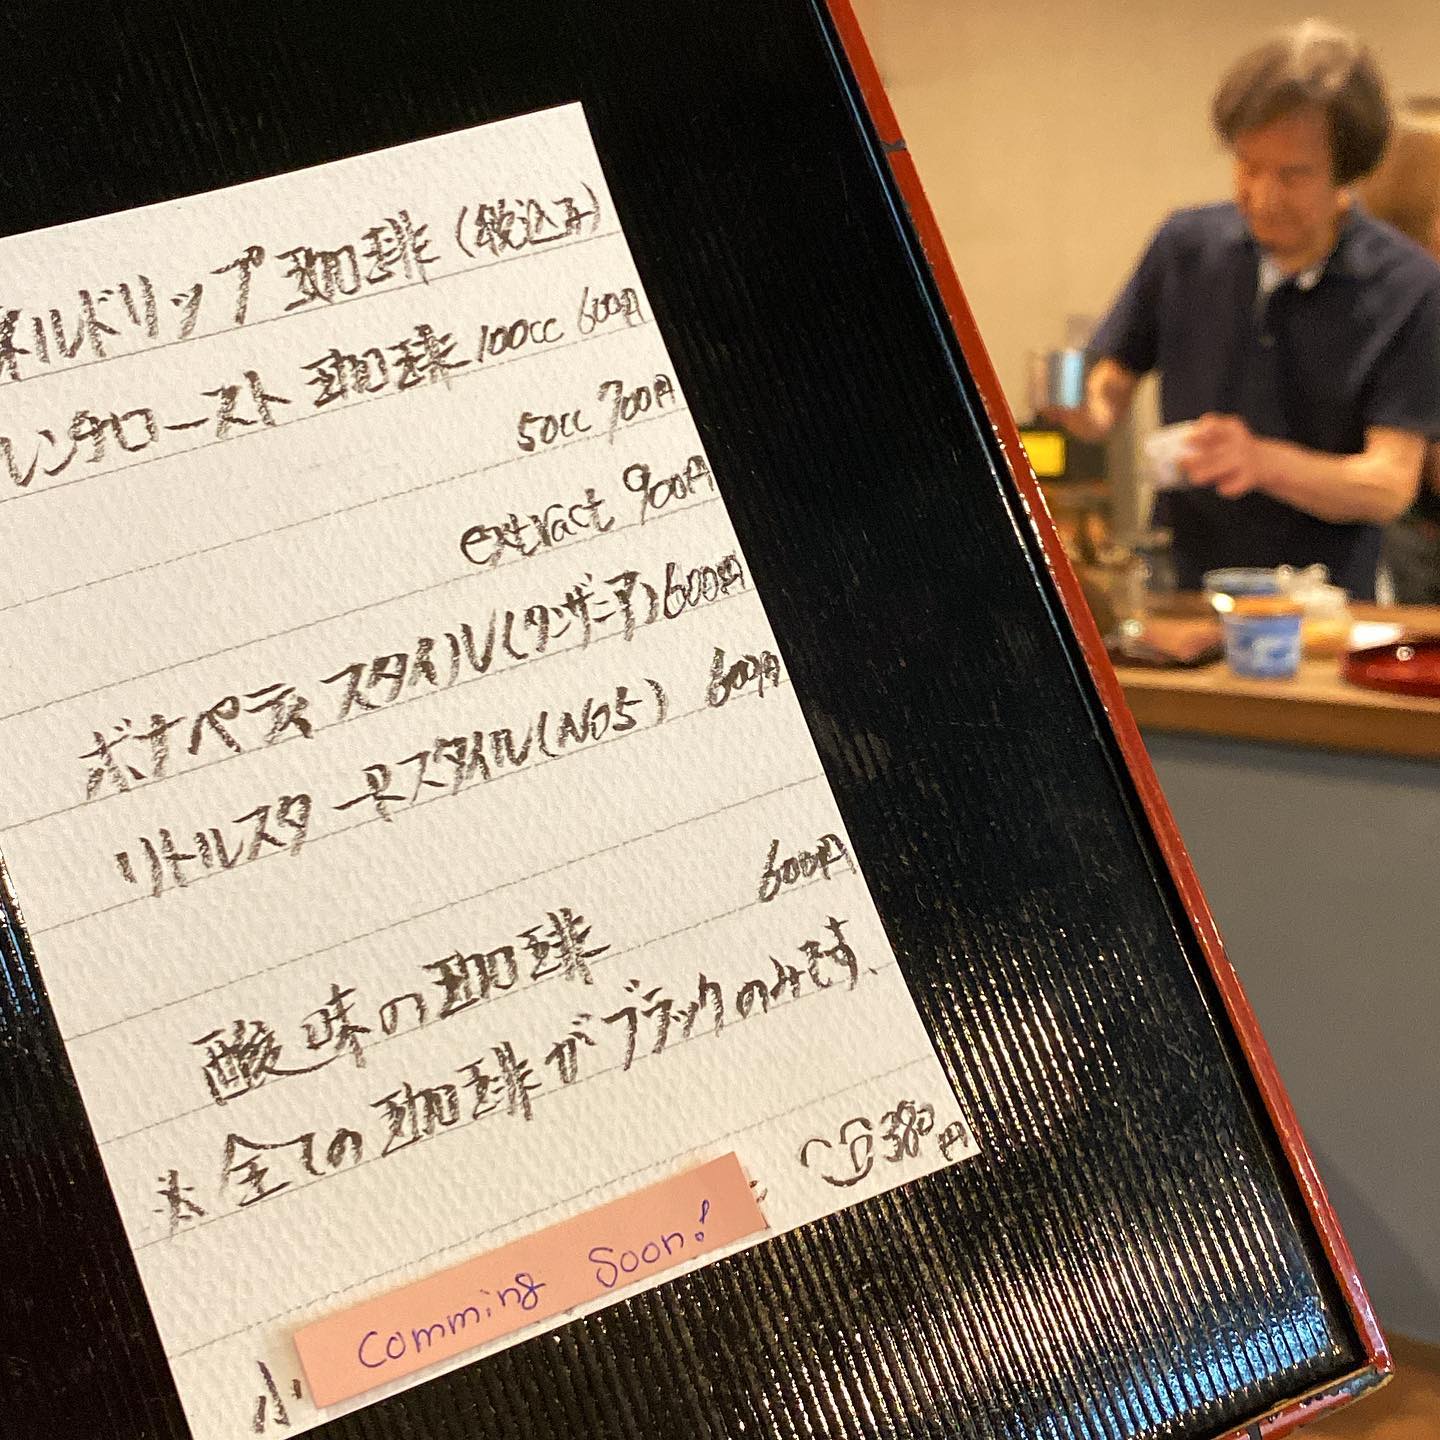 ネルドリップ 珈琲 (税込み)
レンタロースト 珈琲 100cc 600円
50cc 700円
extract 900円
ボナペティ スタイル(タンザニア) 600円
リトルスターネスタイル(No5) 600円
600円
酸味の珈琲
※全ての珈琲がブラックのみです、
380円
小
Comming Soon!